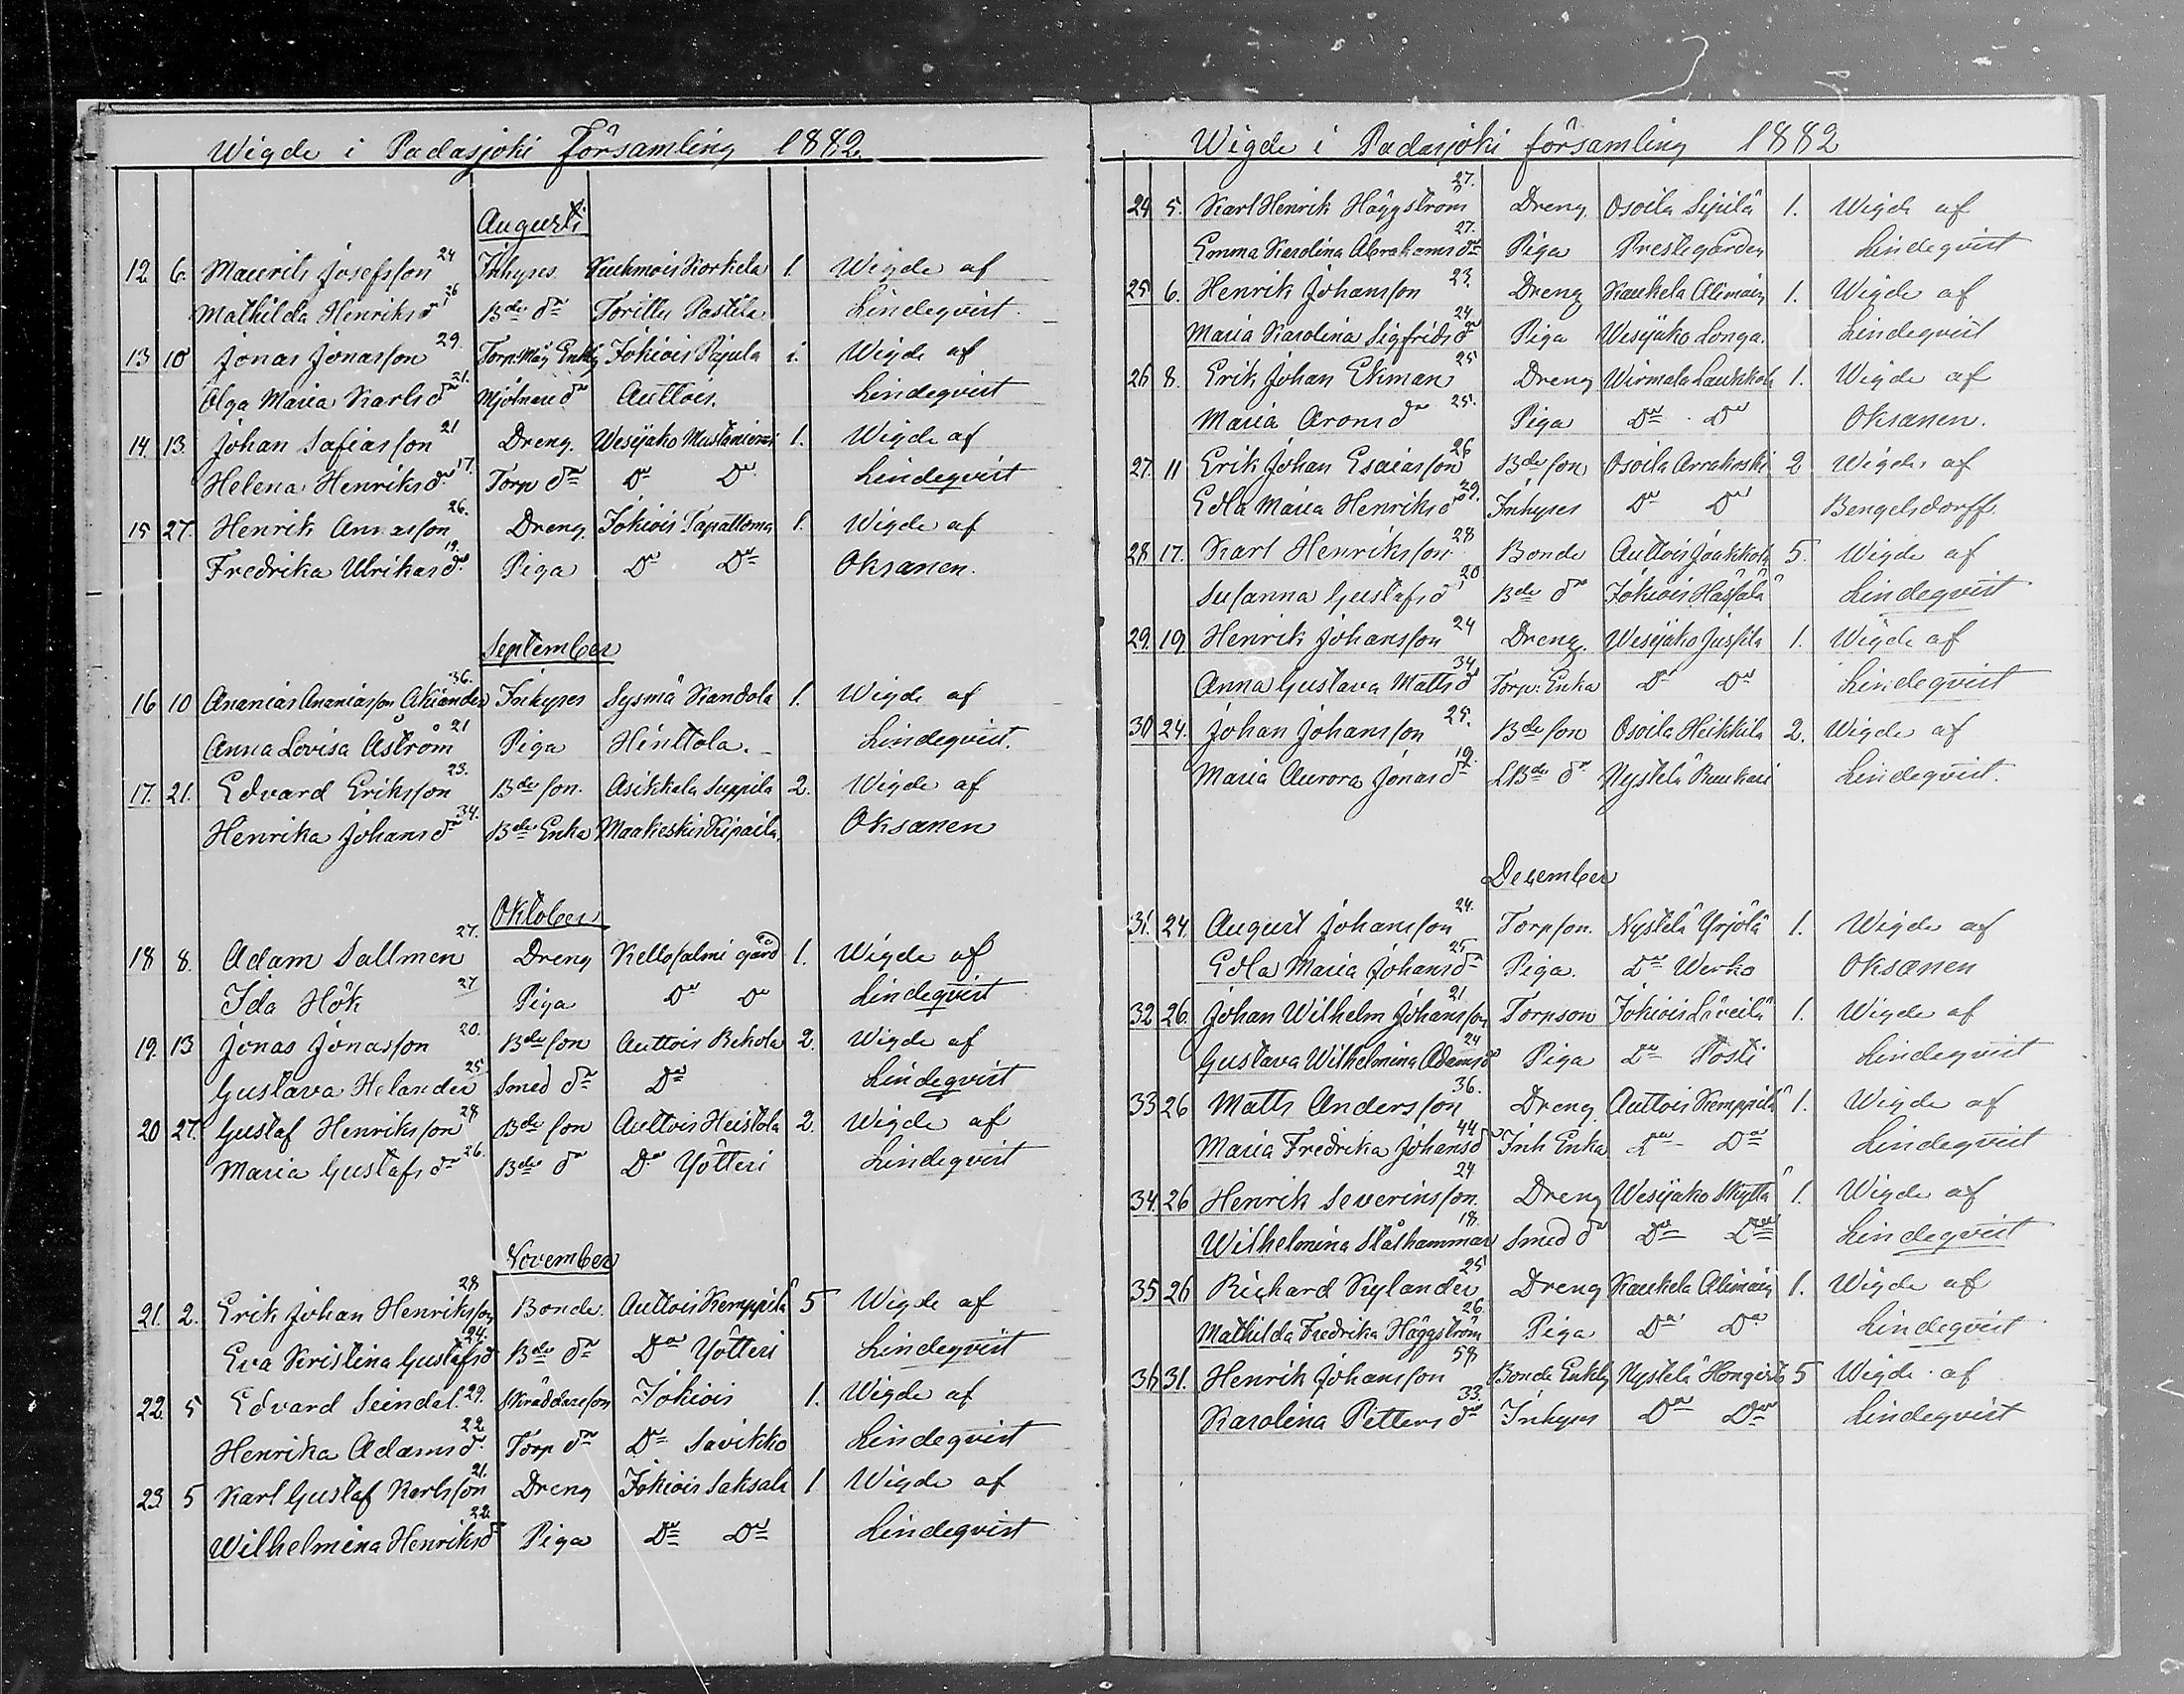 Wigde i Padasjoki Församling 1882.
Augusti
12 6. Maurits Josefsson 24 Inhyses. Kuhmois Korkela 1. Wigde af
Mathilda Henriksdr 26 Bde dr Torittu Pastila Lindeqvist
13 10 Jonas Jonasson 29. Torp: Måg Enkl. Jokiois Pipula 1. Wigde af
Olga Maria Karlsdr 21. Mjölnare dr Auttois. Lindeqvist
14. 13. Johan Safiasson 21 Dreng. Wesijako Mustaniemi 1. Wigde af
Helena Henriksdr 17. Torp dr Do Do Lindeqvist
15 27. Henrik Annasson 26. Dreng. Jokiois Tapattoma 1. Wigde af
Fredrika Ulrikasdr 19. Piga Do Do Oksanen.
September
16 10 Ananias Ananiasson Akiander 36. Inhyses Sysmä Kandola 1. Wigde af
Anna Lovisa Åström 21 Piga Hinttola. Lindeqvist.
17. 21. Edvard Eriksson 23. Bde son. Asikkala Seppila 2. Wigde af
Henrika Johansdr 34. Bde Enka Maakeski Oksanen
Oktober
18 8. Adam Sallmen 27. Dreng Kellosalmi gård 1. Wigde af
Ida Hök 27 Piga Do Do Lindeqvist
19. 13 Jonas Jonasson 20. Bde son Auttois Rekola 2. Wigde af
Gustava Helander 25 Smed dr Do Lindeqvist
20 27. Gustaf Henriksson 28 Bde son Auttois Heistola 2. Wigde af
Maria Gustafsdr 26. Bde dr Do Yötteri Lindeqvist
November
21. 2. Erik Johan Henriksson 28 Bonde. Auttois Kemppilä 5 Wigde af
Eva Kristina Gustafsd 24. Bde dr Do Yötteri Lindeqvist
22. 5 Edvard Seindal. 29. Skräddareson Jokiois 1. Wigde af
Henrika Adamsdr 22 Torp dr Do Savikko Lindeqvist
23 5 Karl Gustaf Karlsson 21. Dreng Jokiois Saksala 1 Wigde af
Wilhelmina Henriksdr 22. Piga Do Do Lindeqvist
Wigde i Padasjoki församling 1882
24 5. Karl Henrik Häggström 27. Dreng. Osoila Sipilä 1. Wigde af
Emma Karolina Abrahamsdr 27. Piga Prestegården Lindeqvist
25 6. Henrik Johansson 23. Dreng Kaukela Alimain 1. Wigde af
Maria Karolina Sigfridsdr 24. Piga Wesijako Longa. Lindeqvist
26 8. Erik Johan Ekman 25 Dreng Wirmala Laukkola 1. Wigde af
Maria Aronsdr 25. Piga Do Do Oksanen.
27. 11 Erik Johan Esaiasson 26 Bde son Osoila Arrakoski 2 Wigde af
Edla Maria Henriksdr 29. Inhyses Do Do Bengelsdorff.
28. 17. Karl Henriksson 28 Bonde Auttois Joukkola 5. Wigde af
Susanna Gustafsdr 20 Bde dr Jokiois Hassala Lindeqvist
29. 19 Henrik Johansson 24 Dreng. Wesijako Jussila 1. Wigde af
Anna Gustava Mattsd 34. Torp: Enka Do Do Lindeqvist
30 24. Johan Johansson 25. Bde son Osoila Heikkila 2. Wigde af
Maria Aurora Jonasdr 19. LBde dr Nystelä Ruukari Lindeqvist.
December
31. 24. August Johansson 24. Torpson. Nystelä Yrjölä 1. Wigde af
Edla Maria Johansdr 25 Piga. Do Werho Oksanen
32 26. Johan Wilhelm Johansson 21 Torpson Jokiois Läveilä 1. Wigde af
Gustava Wilhelmina Adamsd 24 Piga Do Posti Lindeqvist
33 26 Matts Andersson 36. Dreng. Auttois Kemppilä 1. Wigde af
Maria Fredrika Johansd 44 Inh Enka Do Do Lindeqvist
34. 26 Henrik Severinsson. 24 Dreng Wesijako Skyttä 1. Wigde af
Wilhelmina Stålhammar 18. Smed dr Do Do Lindeqvist
35 26 Richard Kylander 25 Dreng Kaukela Alimain 1. Wigde af
Mathilda Fredrika Häggström 26. Piga Do Do Lindeqvist
36 31. Henrik Johansson 58 Bonde Enkl. Nystelä Hongisto 5 Wigde af
Karolina Pettersdr 33. Inhyses Do Do Lindeqvist